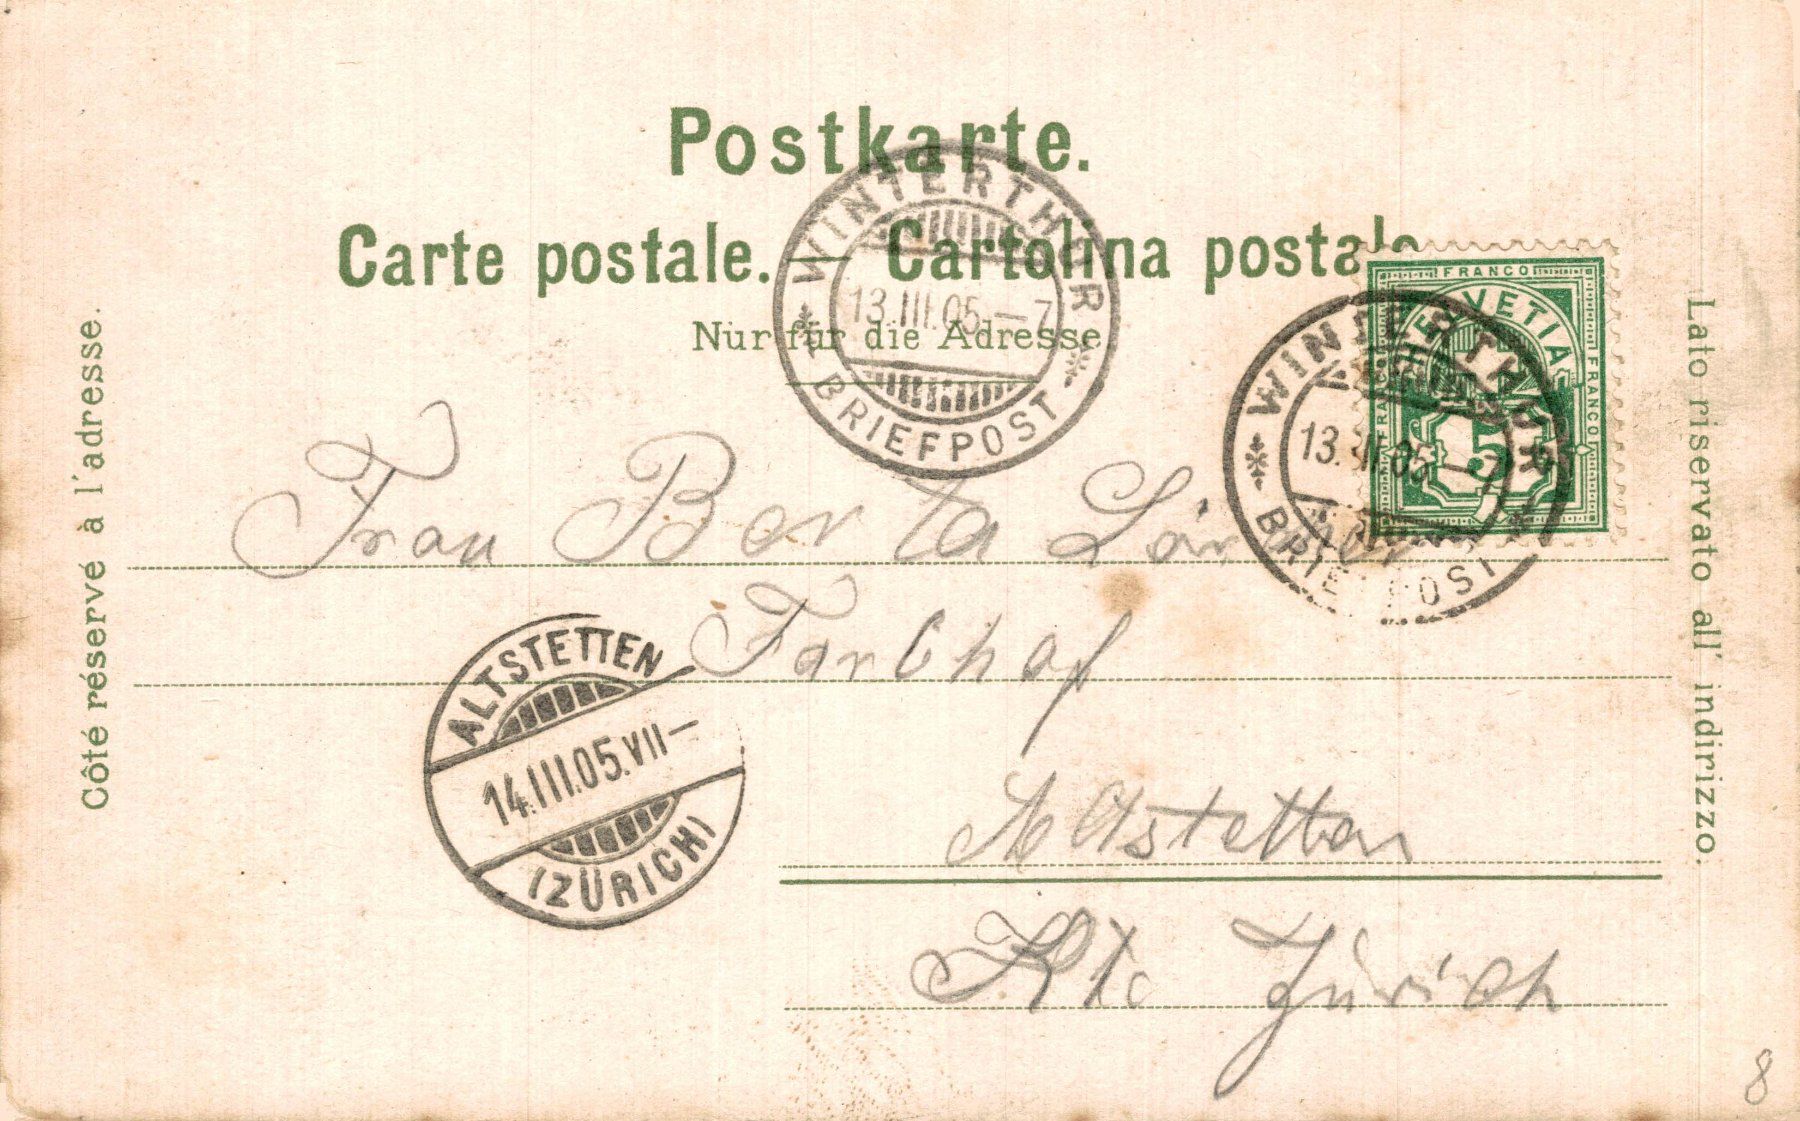 Postkarte.
Carte postale. — Cartolina postale
Nur für die Adresse.
Côté réservé à l'adresse.
Lato riservato all' indirizzo.
WINTERTHUR
13.III.05.—7
BRIEFPOST
FRANCO
HELVETIA
FRANCO
FRANCO
5
WINTERTHUR
13.III.05—7
BRIEFPOST
Frau Berta
ALTSTETTEN
14.III.05.VII—
(ZÜRICH)
Altstetten
Kt. Zürich
8